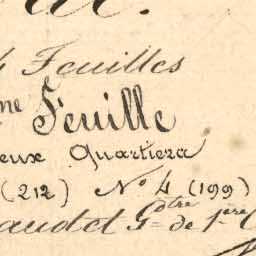 4 Feuilles
me Feuille
eux Quartiera
(212) No 4 (199)
audet Gotre de 1ere